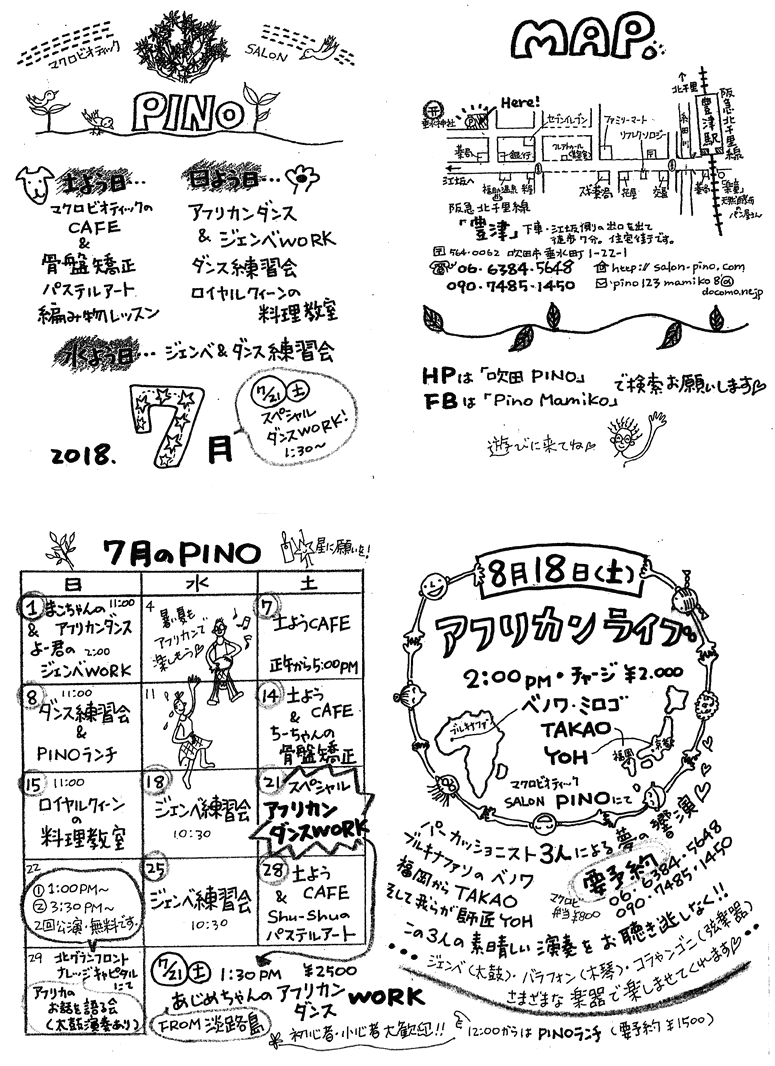 マクロビオティック SALON
PINO
土よう日… 日よう日…
マクロビオティックの
CAFE
&
骨盤矯正
パステルアート
編み物レッスン
アフリカンダンス
& ジェンベWORK
ダンス練習会
ロイヤルクィーンの
料理教室
水よう日… ジェンベ&ダンス練習会
2018. 7月
7/21 土
スペシャル
ダンスWORK!
1:30〜
MAP.
北千里
阪急北千里線
豊津駅
糸田川
垂水神社
Here!
セブンイレブン
ファミリーマート
リフレクソロジー
薬局
銀行
江坂へ
スギ薬局
花屋
交番
薬局
「楽童」
天然酵母
パン屋さん
阪急北千里線
「豊津」下車・江坂側の出口を出て
徒歩7分。住宅街です。
〒564-0062 吹田市垂水町1-22-1
06・6384・5648
090・7485・1450
http://salon-pino.com
pino123mamiko8@
docomo.ne.jp
HPは「吹田PINO」
FBは「Pino Mamiko」
で検索お願いします♡
遊びに来てね♡
7月のPINO
星に願いを!
日 水 土
1 まこちゃんの 11:00
& アフリカンダンス
よー君の 2:00
ジェンベWORK
4
暑い夏を
アフリカンで
楽しもう♡
7
土ようCAFE
正午から5:00PM
8 11:00
ダンス練習会
&
PINOランチ
11
14 土よう
& CAFE
ちーちゃんの
骨盤矯正
15 11:00
ロイヤルクィーン
の
料理教室
18
ジェンベ練習会
10:30
21 スペシャル
アフリカン
ダンスWORK
22
① 1:00PM〜
② 3:30PM〜
2回公演・無料です。
25
ジェンベ練習会
10:30
28 土よう
& CAFE
Shu-Shuの
パステルアート
29 北グランフロント
ナレッジキャピタル
にて
アフリカの
お話を語る会
(太鼓演奏あり)
7/21 土 1:30PM ¥2500
あじめちゃんの アフリカン
ダンス WORK
FROM 淡路島
初心者・小心者大歓迎!!
8月18日(土)
アフリカンライブ。
2:00PM・チャージ ¥2.000
ベノワ・ミロゴ
TAKAO
YOH
ブルキナファソ
福岡
京都
マクロビオティック
SALON PINOにて
パーカッショニスト3人による夢の響演♡
ブルキナファソの ベノワ
福岡から TAKAO
そして我らが師匠 YOH
要予約
06・6384・5648
090・7485・1450
マクロビ
弁当¥800
この3人の素晴しい演奏をお聴き逃しなく!!
ジェンベ(太鼓)・バラフォン(木琴)・コラやンゴニ(弦楽器)
さまざまな楽器で楽しませてくれます♡
12:00からはPINOランチ(要予約 ¥1500)